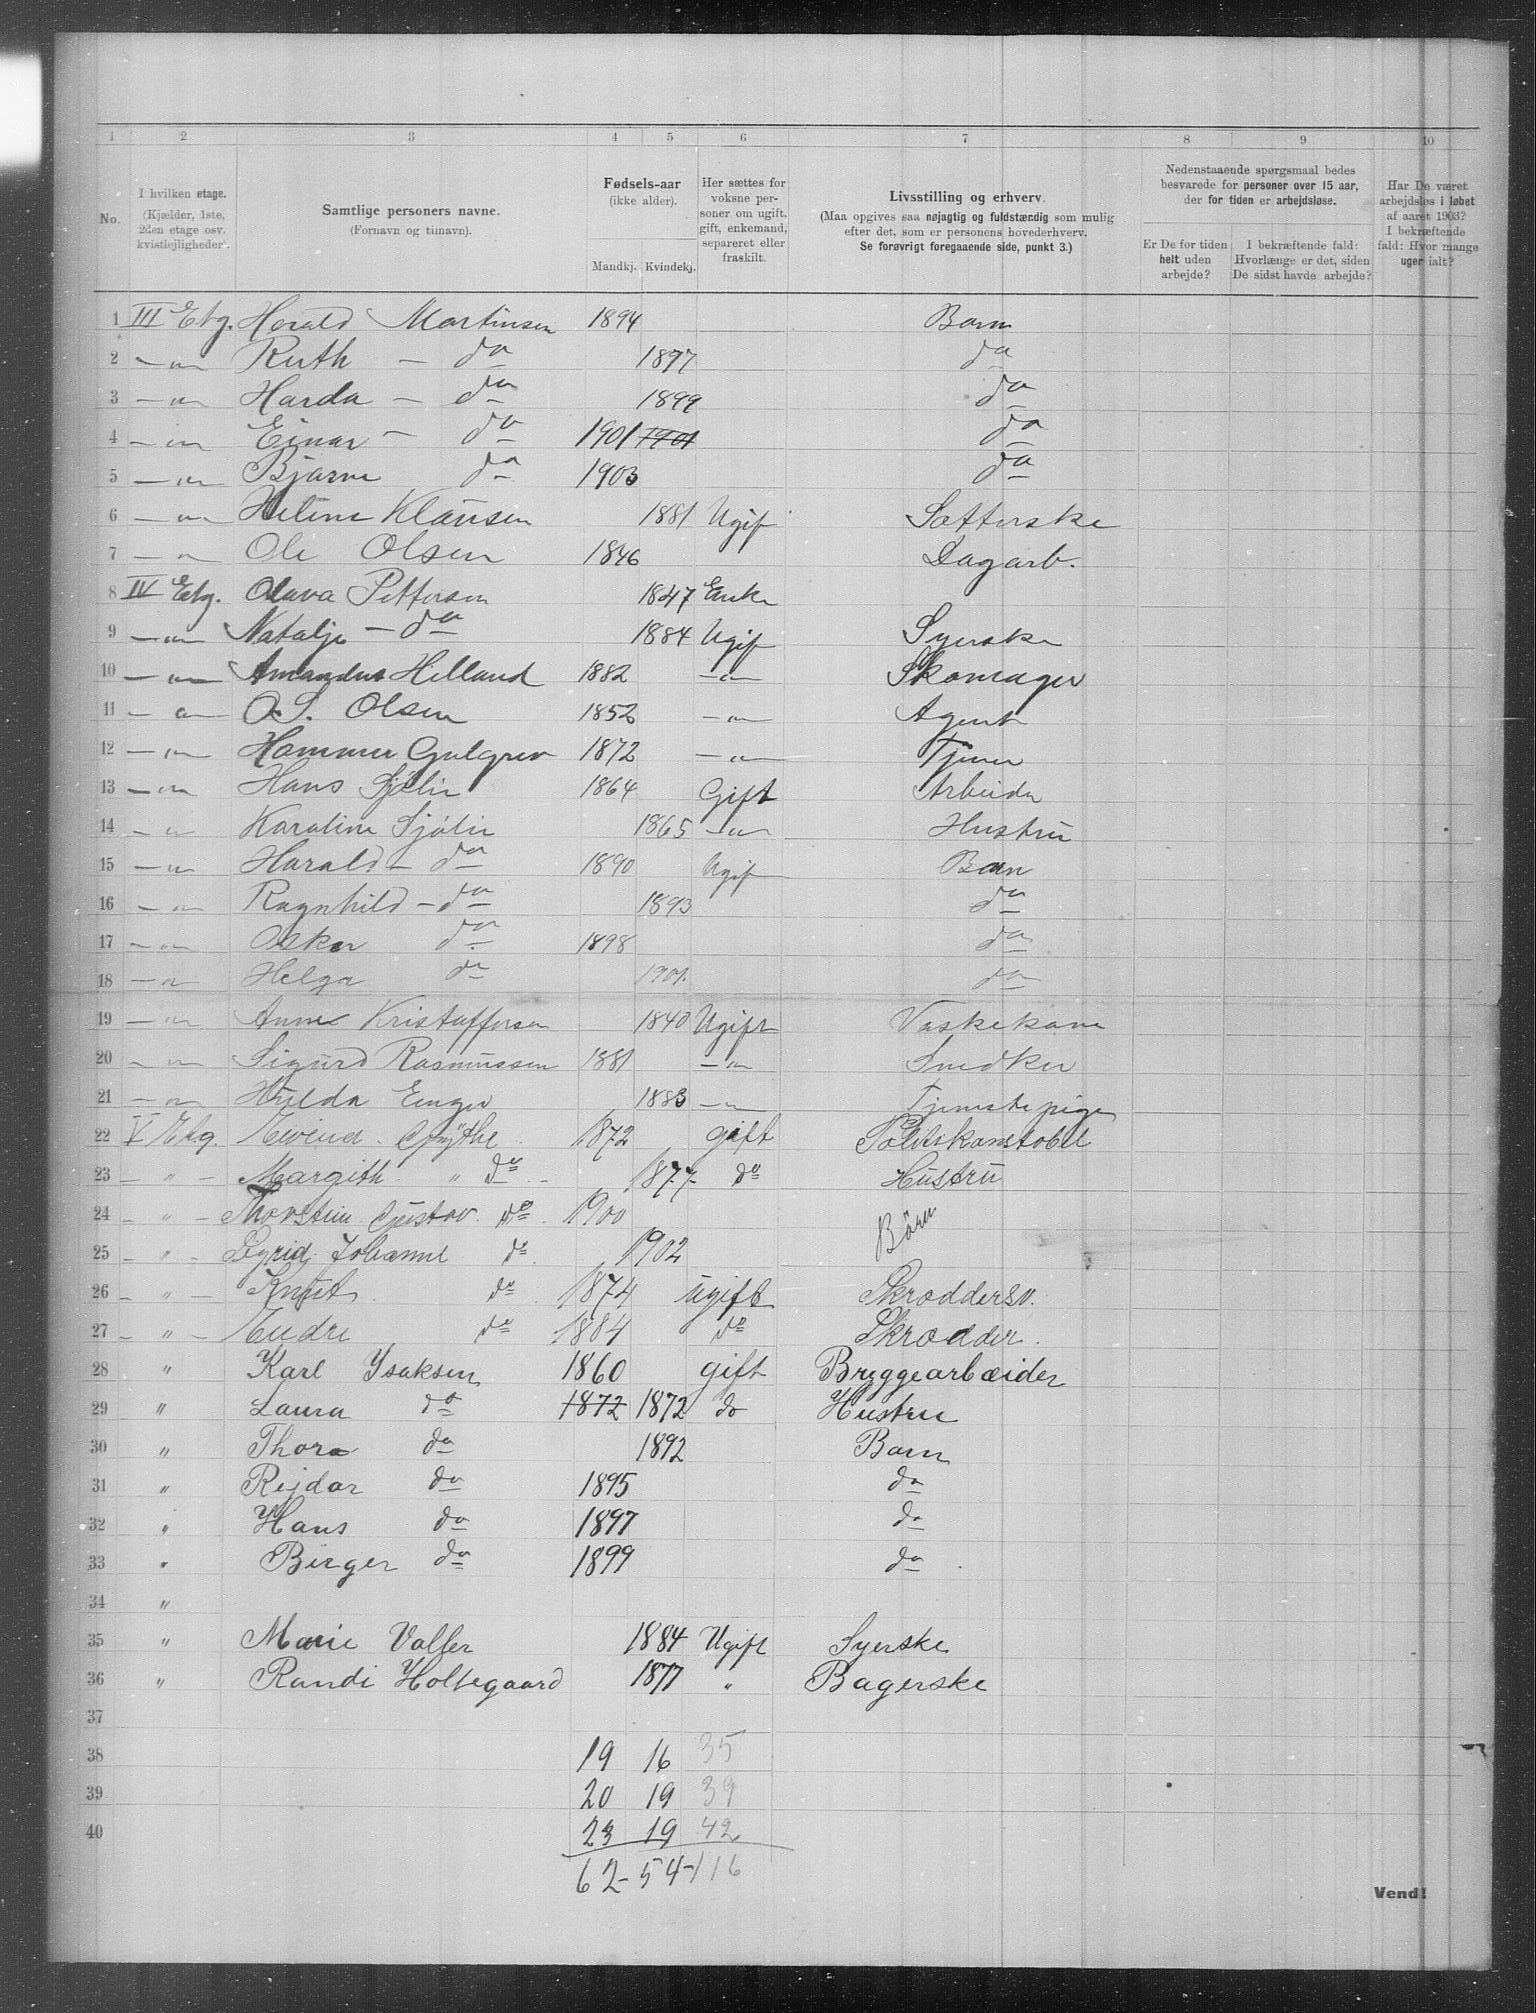 1 2 3 4 5 6 7 8 9 10
No.
I hvilken etage. (Kjælder, 1ste, 2den etage osv. kvistleiligheder).
Samtlige personers navne. (Fornavn og tilnavn).
Fødsels-aar (ikke alder). Mandkj. Kvindekj.
Her sættes for voksne personer om ugift, gift, enkemand, separeret eller fraskilt.
Livsstilling og erhverv. (Maa opgives saa nøjagtig og fuldstændig som mulig efter det, som er personens hovederhverv. Se forøvrigt foregaaende side, punkt 3.)
Nedenstaaende spørgsmaal bedes besvarede for personer over 15 aar, der for tiden er arbejdsløse.
Er De for tiden helt uden arbejde?
I bekræftende fald: Hvorlænge er det, siden De sidst havde arbejde?
Har De været arbejdsløs i løbet af aaret 1903? I bekræftende fald: Hvor mange uger ialt?
1 III Etg. Harald Martinsen 1894 Barn
2 — " — Ruth — do 1897 do
3 — " — Harda — do 1899 do
4 — " — Einar — do 1901 1901 do
5 — " — Bjarne do 1903 do
6 — " — Helene Klausen 1881 Ugif
7 — " Ole Olsen 1846 Dagarb.
8 IV Etg. Olava Pettersen 1847 Enke
9 — " — Natalje — do 1884 Ugif Syerske
10 — " — Amandus Helland 1882 — " — Skomager
11 — " — O. S. Olsen 1852 — " — Agent
12 — " — Hammer 1872 — " — Tjener
13 — " — Hans Sjölin 1864 Gift Arbeider
14 — " — Karoline Sjölin 1865 — " — Hustru
15 — " — Harald — do 1890 Ugif Barn
16 — " — Ragnhild — do 1893 do
17 — " — Oskar do 1898 do
18 — " — Helga do 1901. do
19 — " — Anne Kristoffersen 1840 Ugift Vaskekone
20 — " — Sigurd Rasmussen 1881 — " — Snedker
21 — " — Hulda Enger 1883 — " — Tjenestepige
22 V Etg. Eivend 1872 gift Politikonstabel
23 — " — Margith " do 1877 do Hustru
24 — " — Thorstein Gustav do 1900 Börn
25 — " — Sigrid Johanne do 1902
26 — " — Knut do 1874 ugift Skræddersv.
27 — " — Endre do 1884 do Skrædder.
28 " Karl Ysaksen 1860 gift Bryggearbæider
29 " Laura do 1872 1872 do Hustru
30 " Thora do 1892 Barn
31 " Rejdar do 1895 do
32 " Hans do 1897 do
33 " Birger do 1899 do
34 "
35 " Marie Valler 1884 Ugift Syerske
36 " Randi Holtegaard 1877 " Bagerske
37
38 19 16 35
39 20 19 39
40 23 19 42
62 - 54 - 116
Vend!